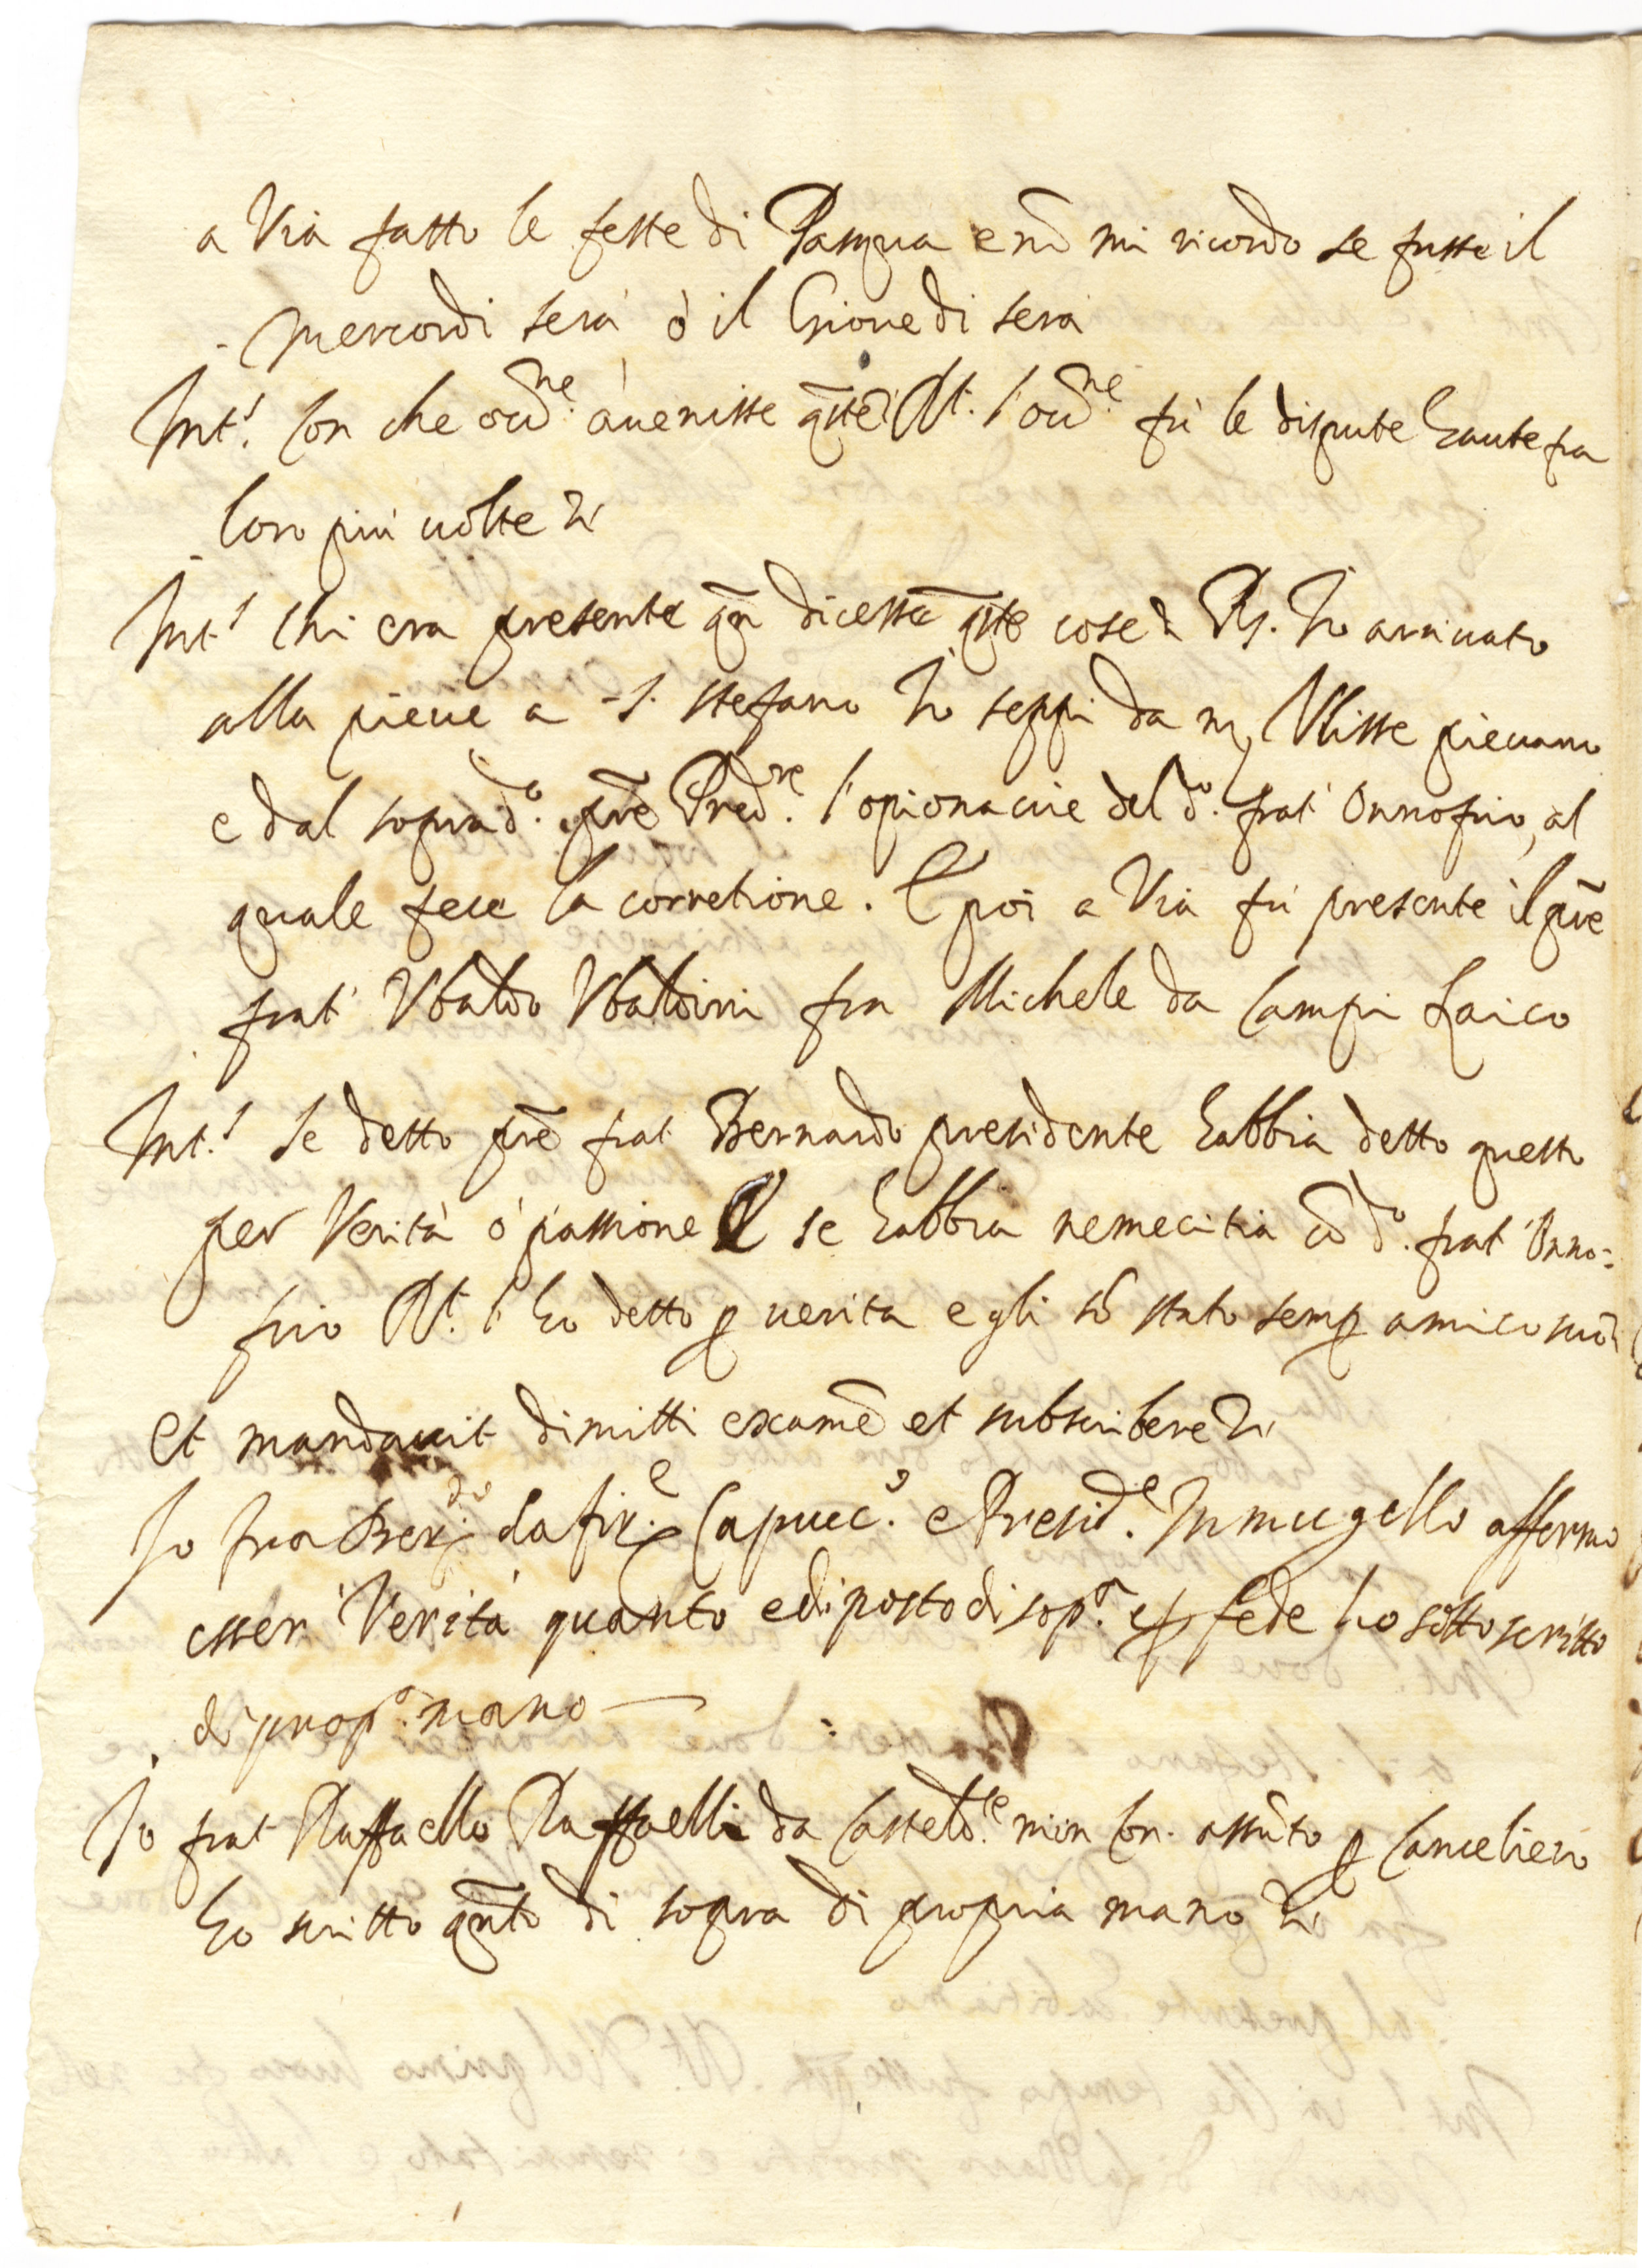 a Via fatto le feste di Pasqua e nō mi ricordo se fusse il
Mercordi sera ò il Giovedi sera
Int.º Con che occ.ne avenisse q̄sto Rt. l'occ.ne fù le dispute haute fra
loro più uolte &
Int.º Chi era presente qn̄ dicesse q̄ste cose & Rs. Io arrivato
alla pieve a S. Stefano Io seppi da m. Ulisse pievano
e dal soprad.º prē Pred.re l'opionacue del d.º frat' Onnofrio, al
quale fece la corretione. E poi a Via fù presente il prē
frat' Vbaldo Vbaldini fra Michele da Campi Laico
Int.º Se detto prē frat Bernardo presidente habbia detto questo
per Verità ò passione se habbia nemecitia cō d.º frat' Onno=
frio Rt. l'ho detto p uerita e gli sō stato semp amico
Et mandauit dimitti examē et subscribere &
Io fra Ber.do da fir.e Capucc.º e Presid.e In mugello affermo
esser' Verità quanto e diposto di sop.a e p fede ho sottoscritto
di prop.a mano
Io frat Raffaello Raffaelli da Casteld.te min Con. assūto p Cancelliero
ho scritto qn̄to di sopra di propria mano &